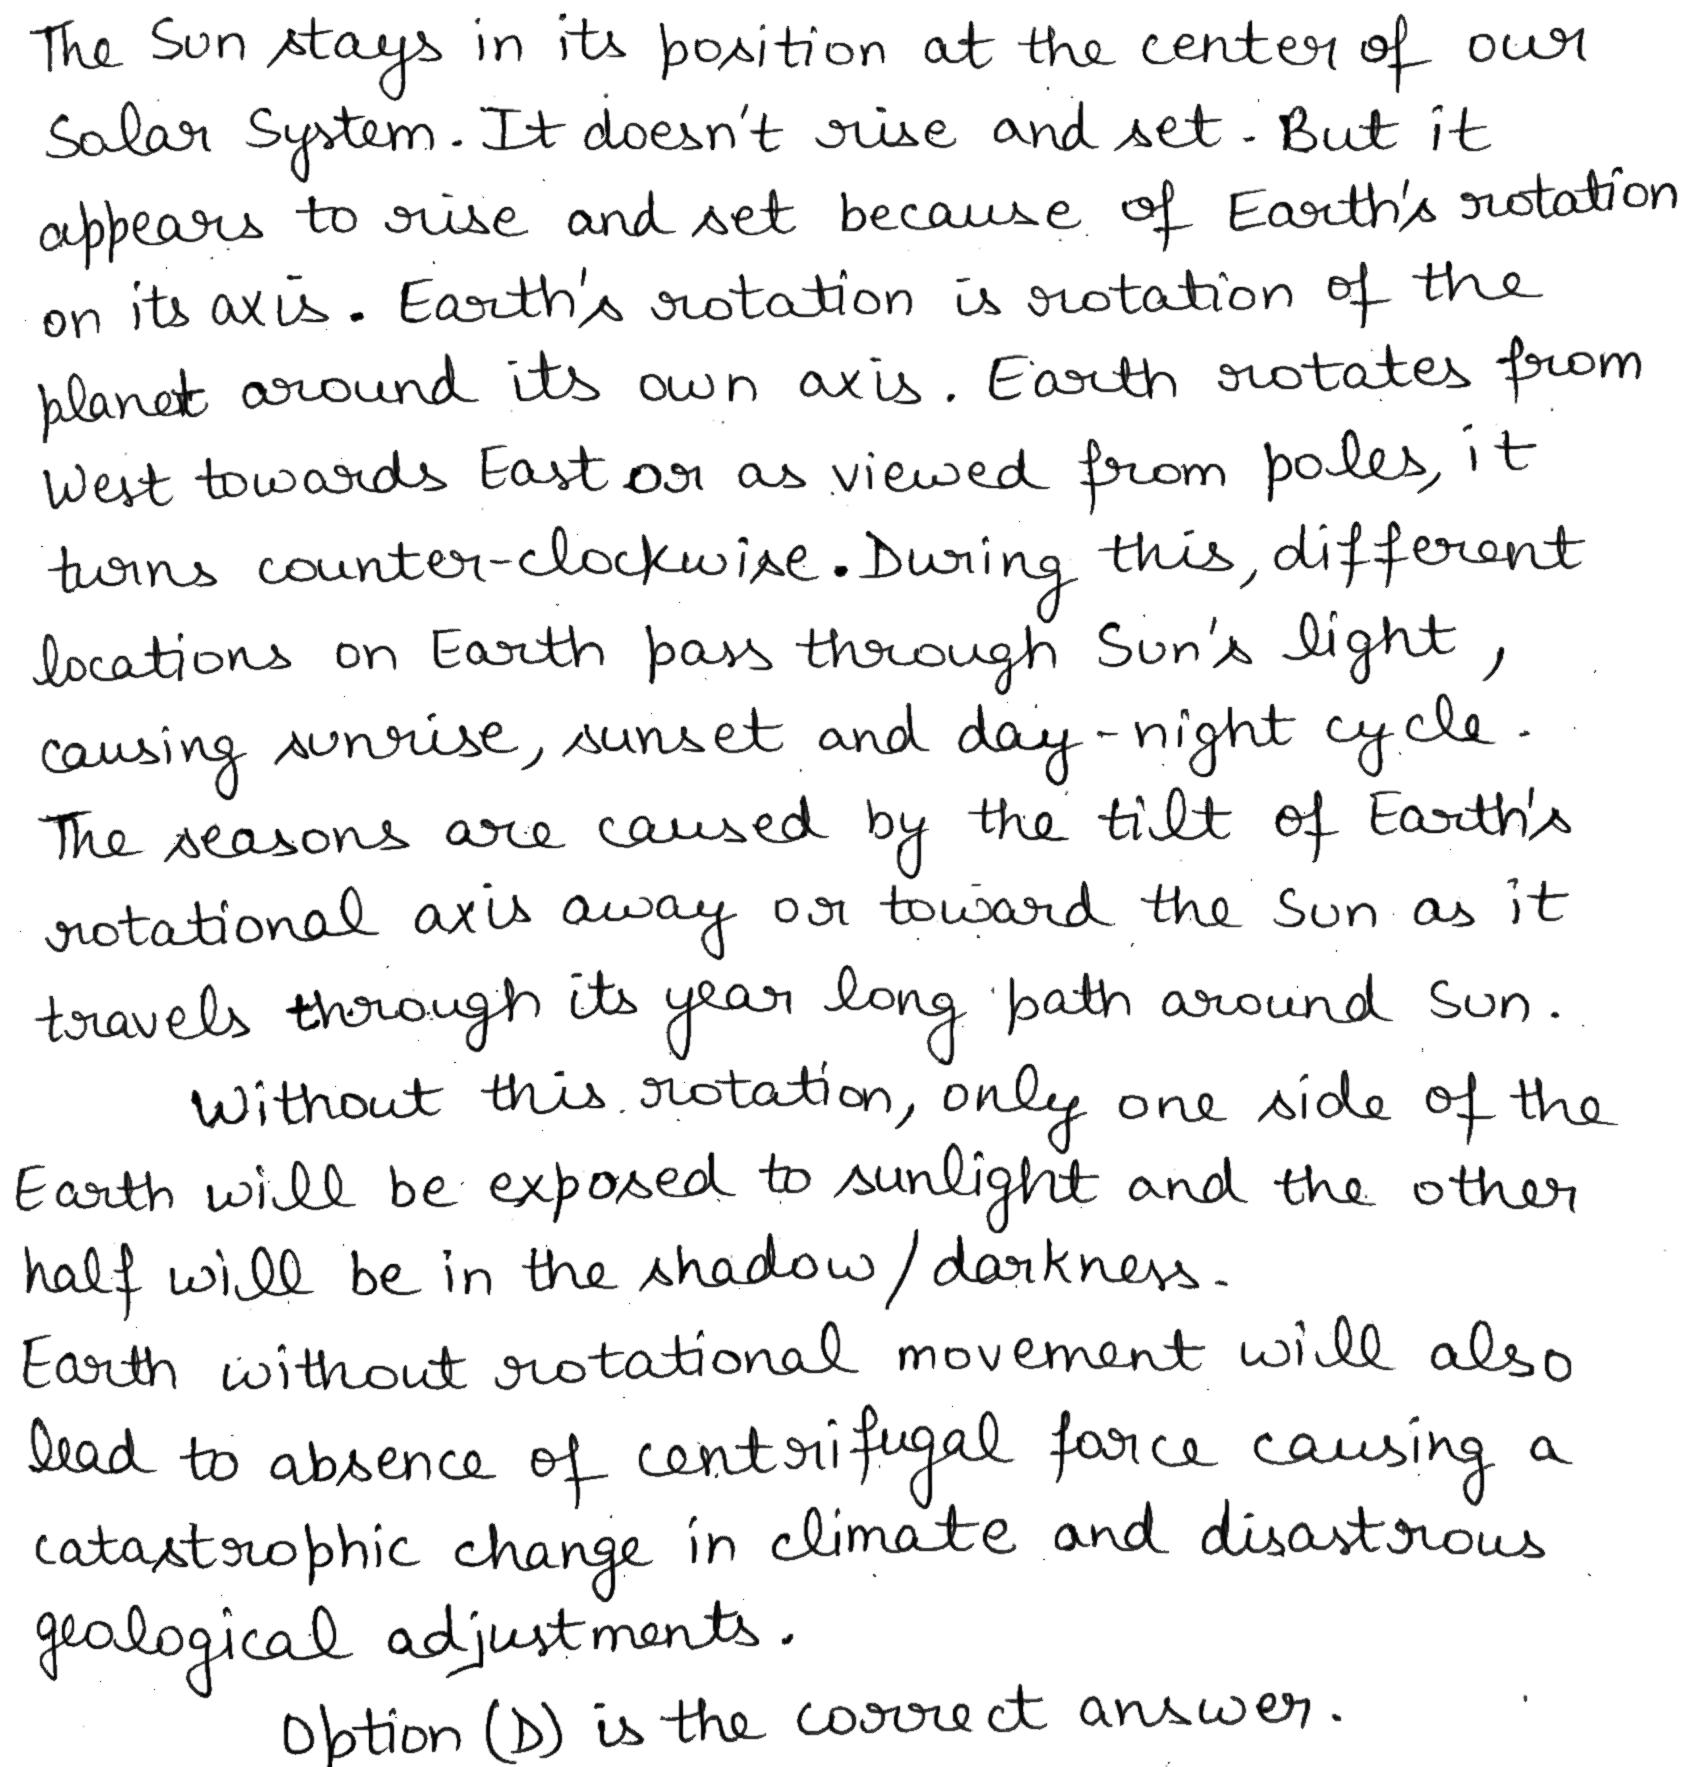 The Sun stays in its position at the center of our
Solar System. It doesn't rise and set. But it
appears to rise and set because of Earth's rotation
on its axis. Earth's rotation is rotation of the
planet around its own axis. Earth rotates from
West towards East or as viewed from poles, it
turns counter-clockwise. During this, different
locations on Earth pass through Sun's light,
causing sunrise, sunset and day-night cycle.
The seasons are caused by the tilt of Earth's
rotational axis away or toward the Sun as it
travels through its year long path around Sun.
Without this rotation, only one side of the
Earth will be exposed to sunlight and the other
half will be in the shadow/darkness.
Earth without rotational movement will also
lead to absence of centrifugal force causing a
catastrophic change in climate and disastrous
geological adjustments.
Option (D) is the correct answer.